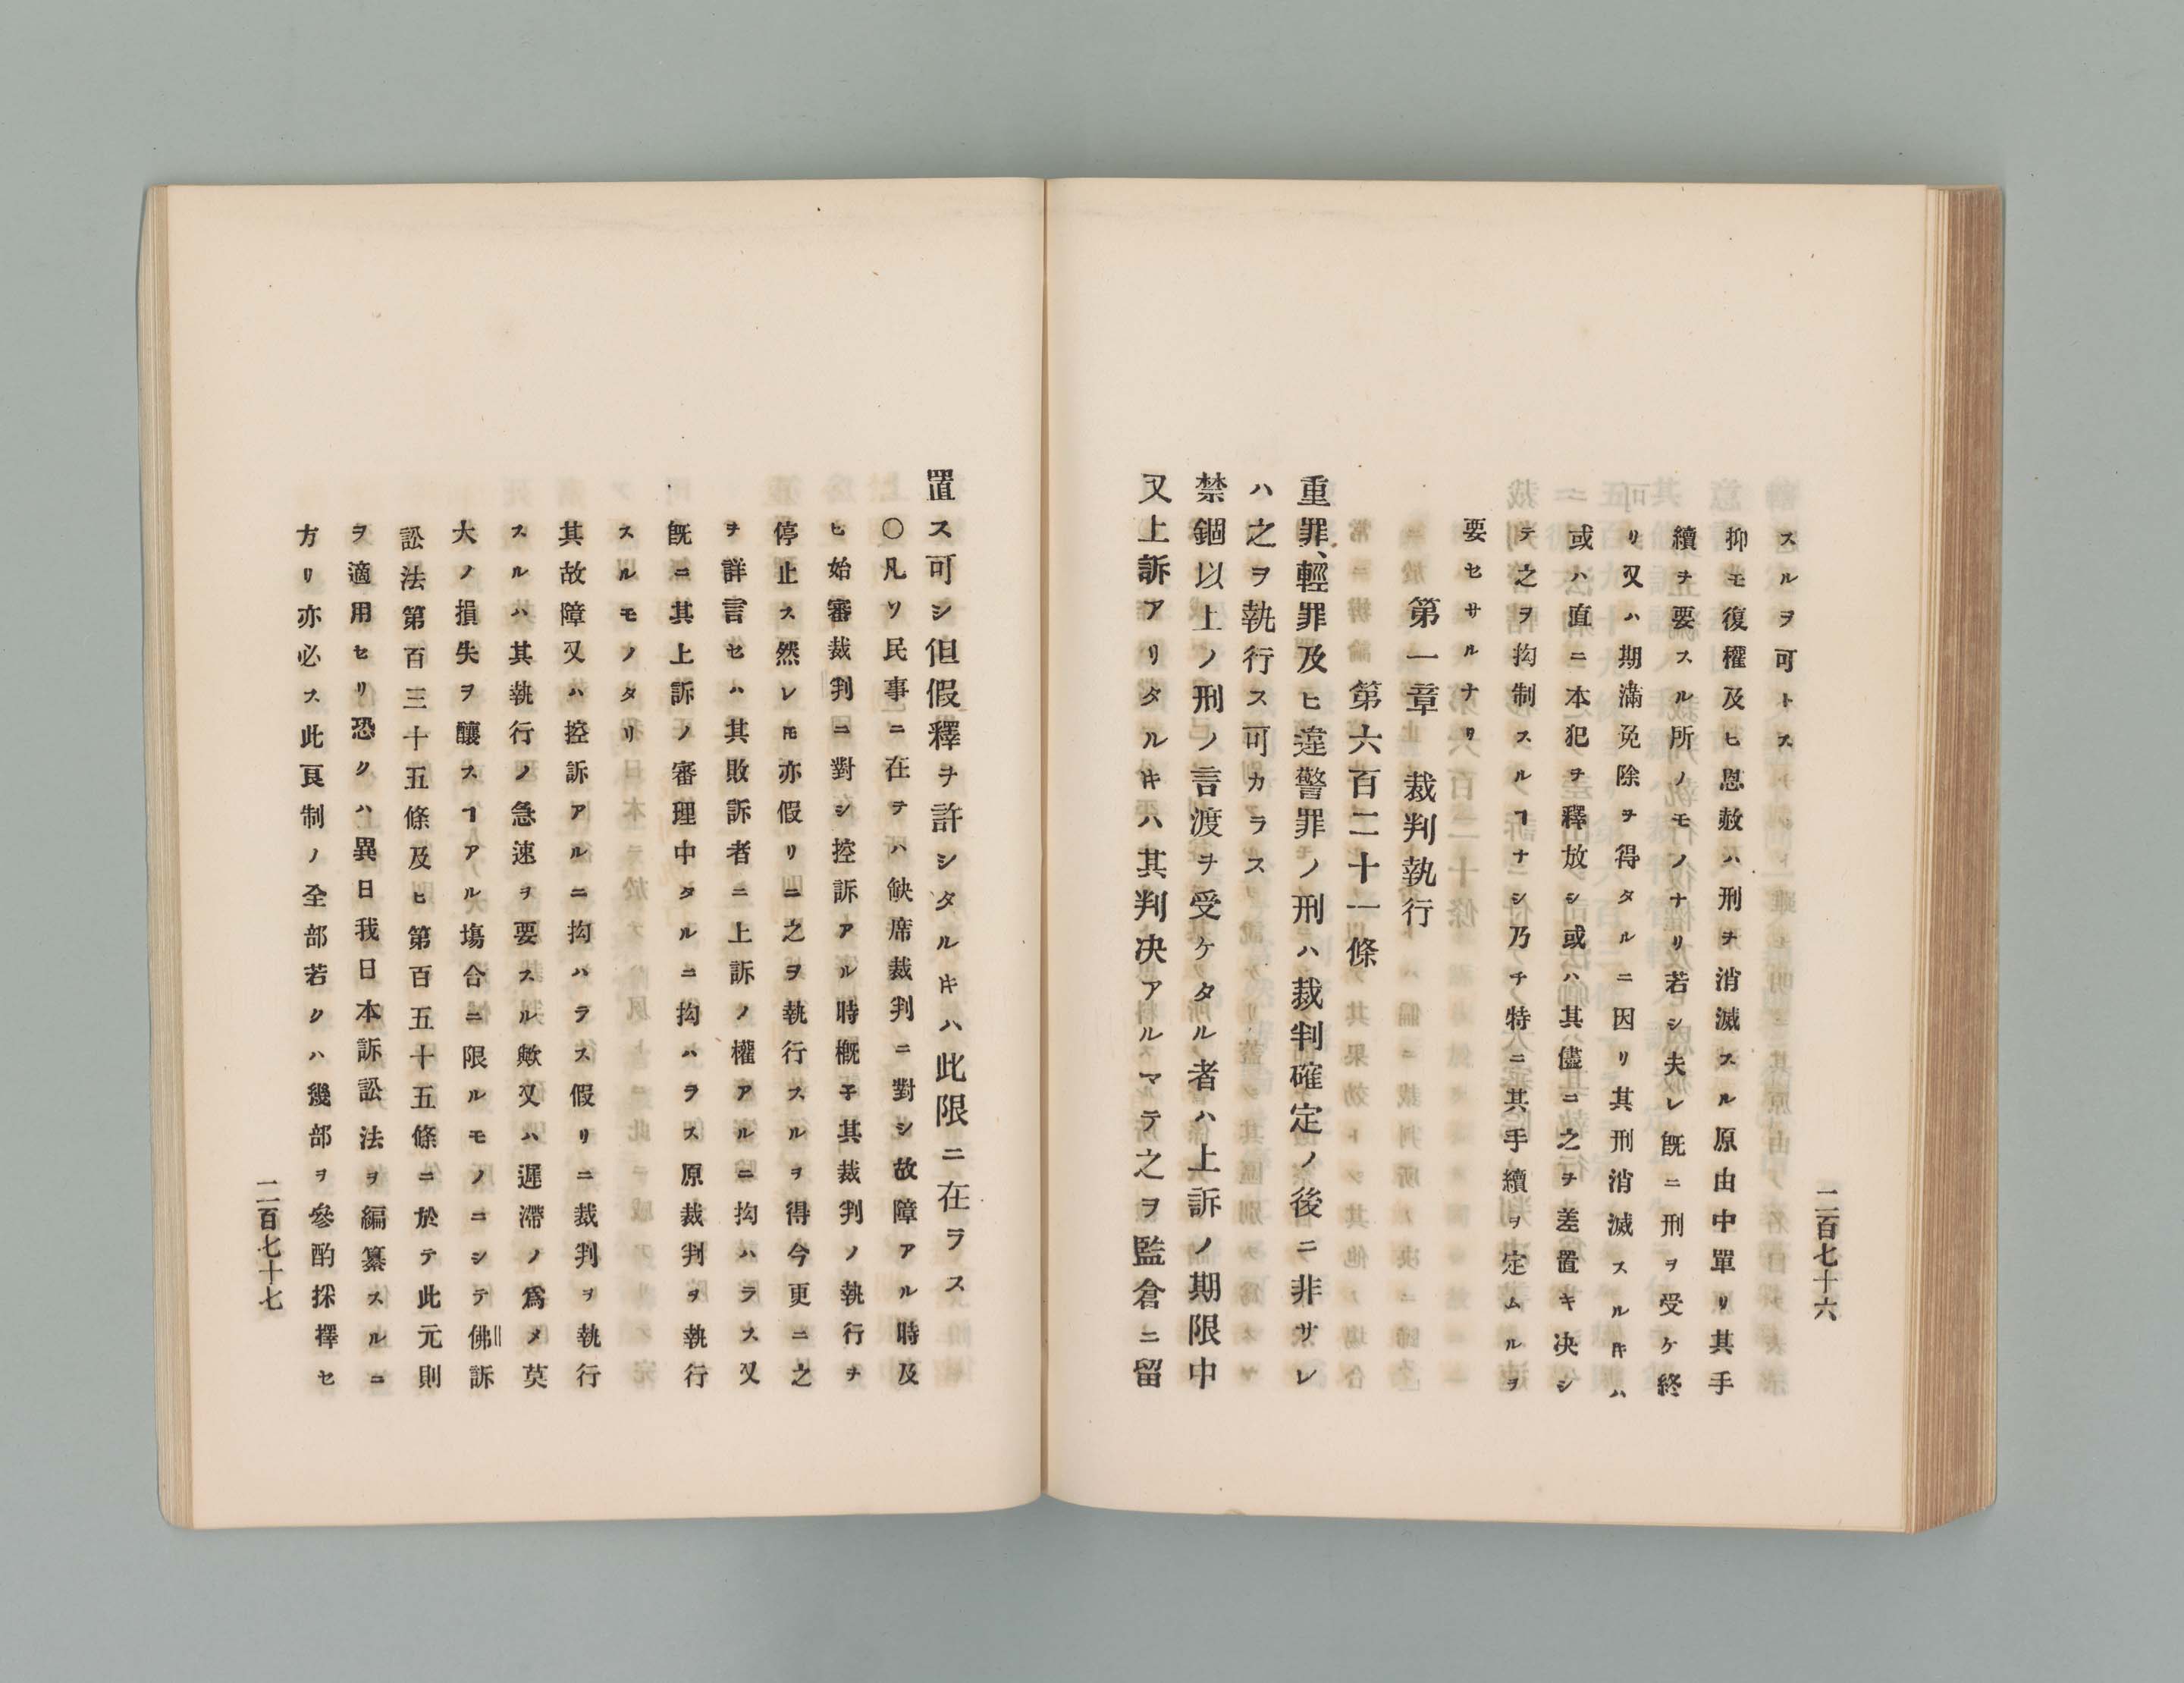 二百七十六
スルヲ可トス
抑モ復權及ヒ恩赦ハ刑ヲ消滅スル原由中單リ其手
續ヲ要スル所ノモノナリ若シ夫レ既ニ刑ヲ受ケ終
リ又ハ期滿免除ヲ得タルニ因リ其刑消滅スルキハ
或ハ直ニ本犯ヲ釋放シ或ハ其儘ニ之ヲ差置キ决シ
テ之ヲ拘制スルヿナシ乃チ特ニ其手續ヲ定ムルヲ
要セサルナリ
第一章 裁判執行
第六百二十一條
重罪、輕罪及ヒ違警罪ノ刑ハ裁判確定ノ後ニ非サレ
ハ之ヲ執行ス可カラス
禁錮以上ノ刑ノ言渡ヲ受ケタル者ハ上訴ノ期限中
又上訴アリタルキハ其判决アルマテ之ヲ監倉ニ留
置ス可シ但假釋ヲ許シタルキハ此限ニ在ラス
〇凡ソ民事ニ在テハ缺席裁判ニ對シ故障アル時及
ヒ始審裁判ニ對シ控訴アル時概子其裁判ノ執行ヲ
停止ス然レ𪜈亦假リニ之ヲ執行スルヲ得今更ニ之
ヲ詳言セハ其敗訴者ニ上訴ノ權アルニ拘ハラス又
既ニ其上訴ノ審理中タルニ拘ハラス原裁判ヲ執行
スルモノタリ
其故障又ハ控訴アルニ拘ハラス假リニ裁判ヲ執行
スルハ其執行ノ急速ヲ要スル歟又ハ遲滯ノ爲メ莫
大ノ損失ヲ釀スヿアル塲合ニ限ルモノニシテ佛訴
訟法第百三十五條及ヒ第百五十五條ニ於テ此元則
ヲ適用セリ恐クハ異日我日本訴訟法ヲ編纂スルニ
方リ亦必ス此良制ノ全部若クハ幾部ヲ參酌採擇セ
二百七十七